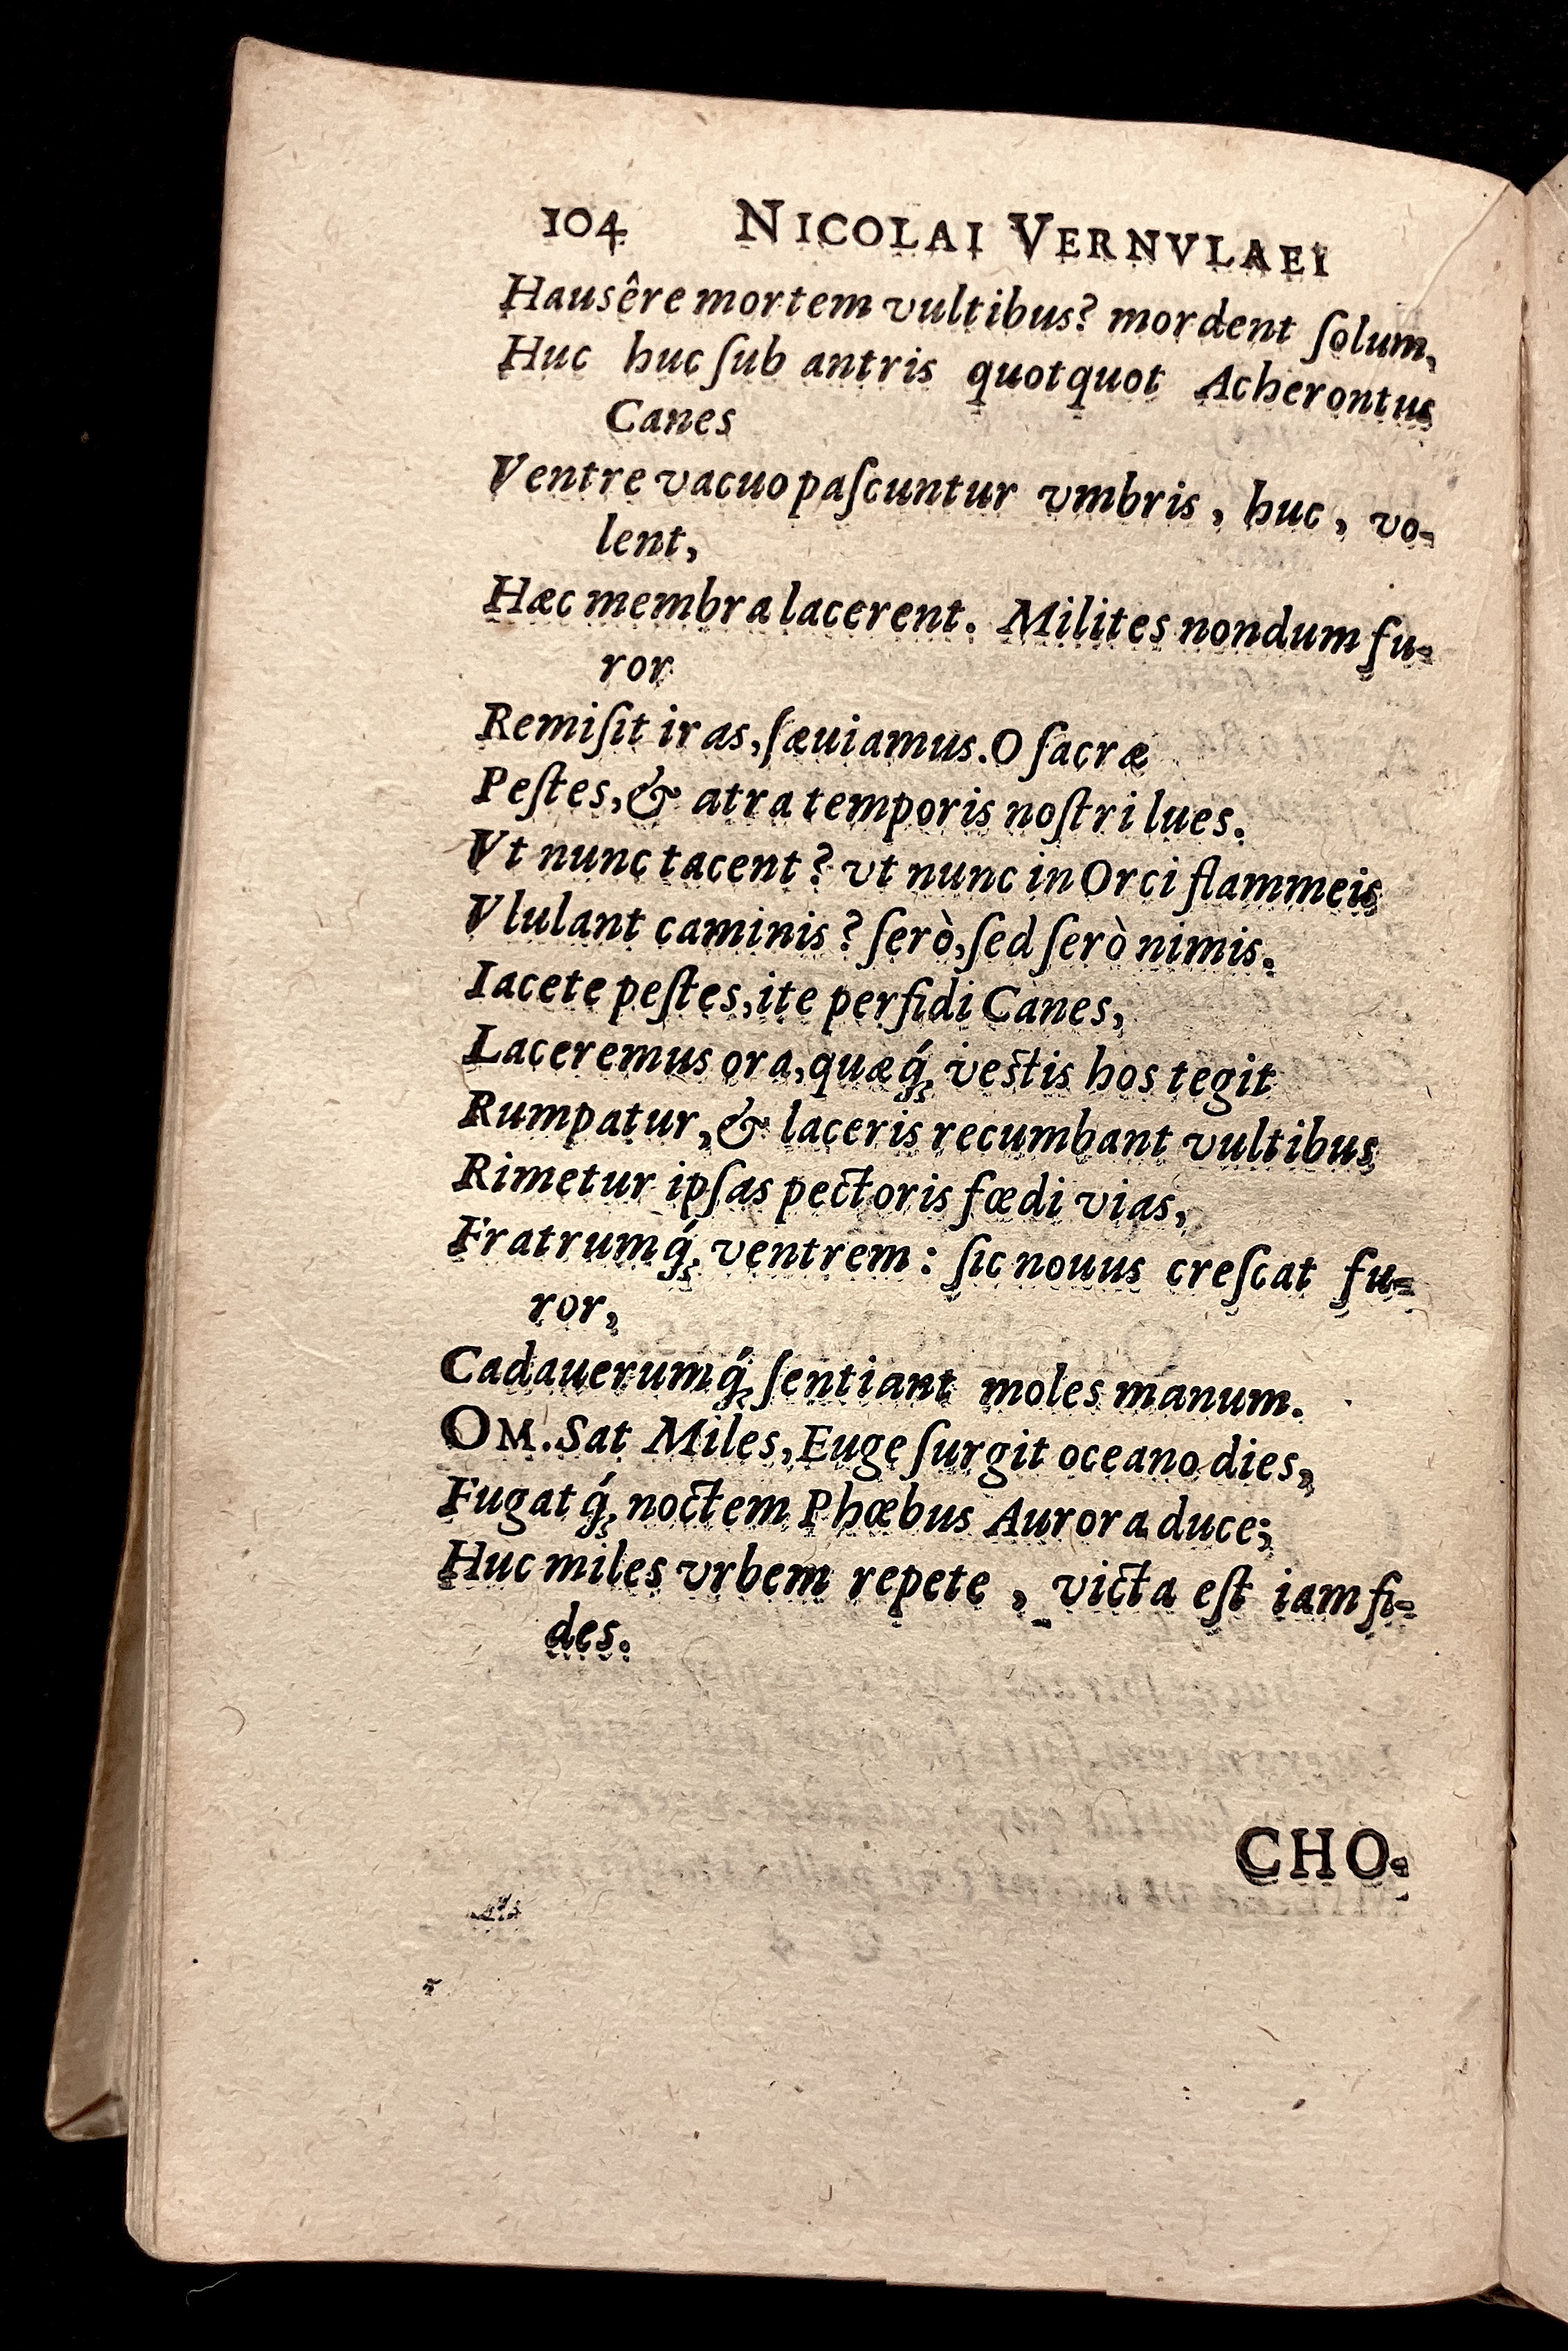 104 NICOLAI VERNVLAEI
Hausêre mortem vultibus? mordent ſolum,
Huc huc ſub antris quotquot Acherontus
Canes
Ventre vacuo paſcuntur vmbris, huc, vo-
lent,
Hæc membra lacerent. Milites nondum fu-
ror
Remiſit iras, ſæuiamus. O ſacræ
Peſtes, & atra temporis noſtri lues.
Vt nunc tacent? vt nunc in Orci flammeis
Vlulant caminis? ſerò, ſed ſerò nimis.
Iacete peſtes, ite perfidi Canes,
Laceremus ora, quæq́; vestis hos tegit
Rumpatur, & laceris recumbant vultibus
Rimetur ipſas pectoris fœdi vias,
Fratrumq́; ventrem: ſic nouus creſcat fu-
ror,
Cadauerumq́; ſentiant moles manum.
OM. Sat Miles, Euge ſurgit oceano dies,
Fugatq́; noctem Phœbus Aurora duce;
Huc miles vrbem repete, victa eſt iam fi-
des.
CHO-